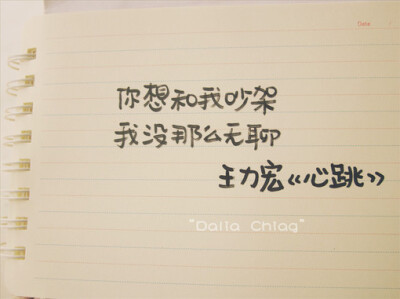 Date
你想和我吵架
我没那么无聊
王力宏《心跳》
"Dalla Chlag"